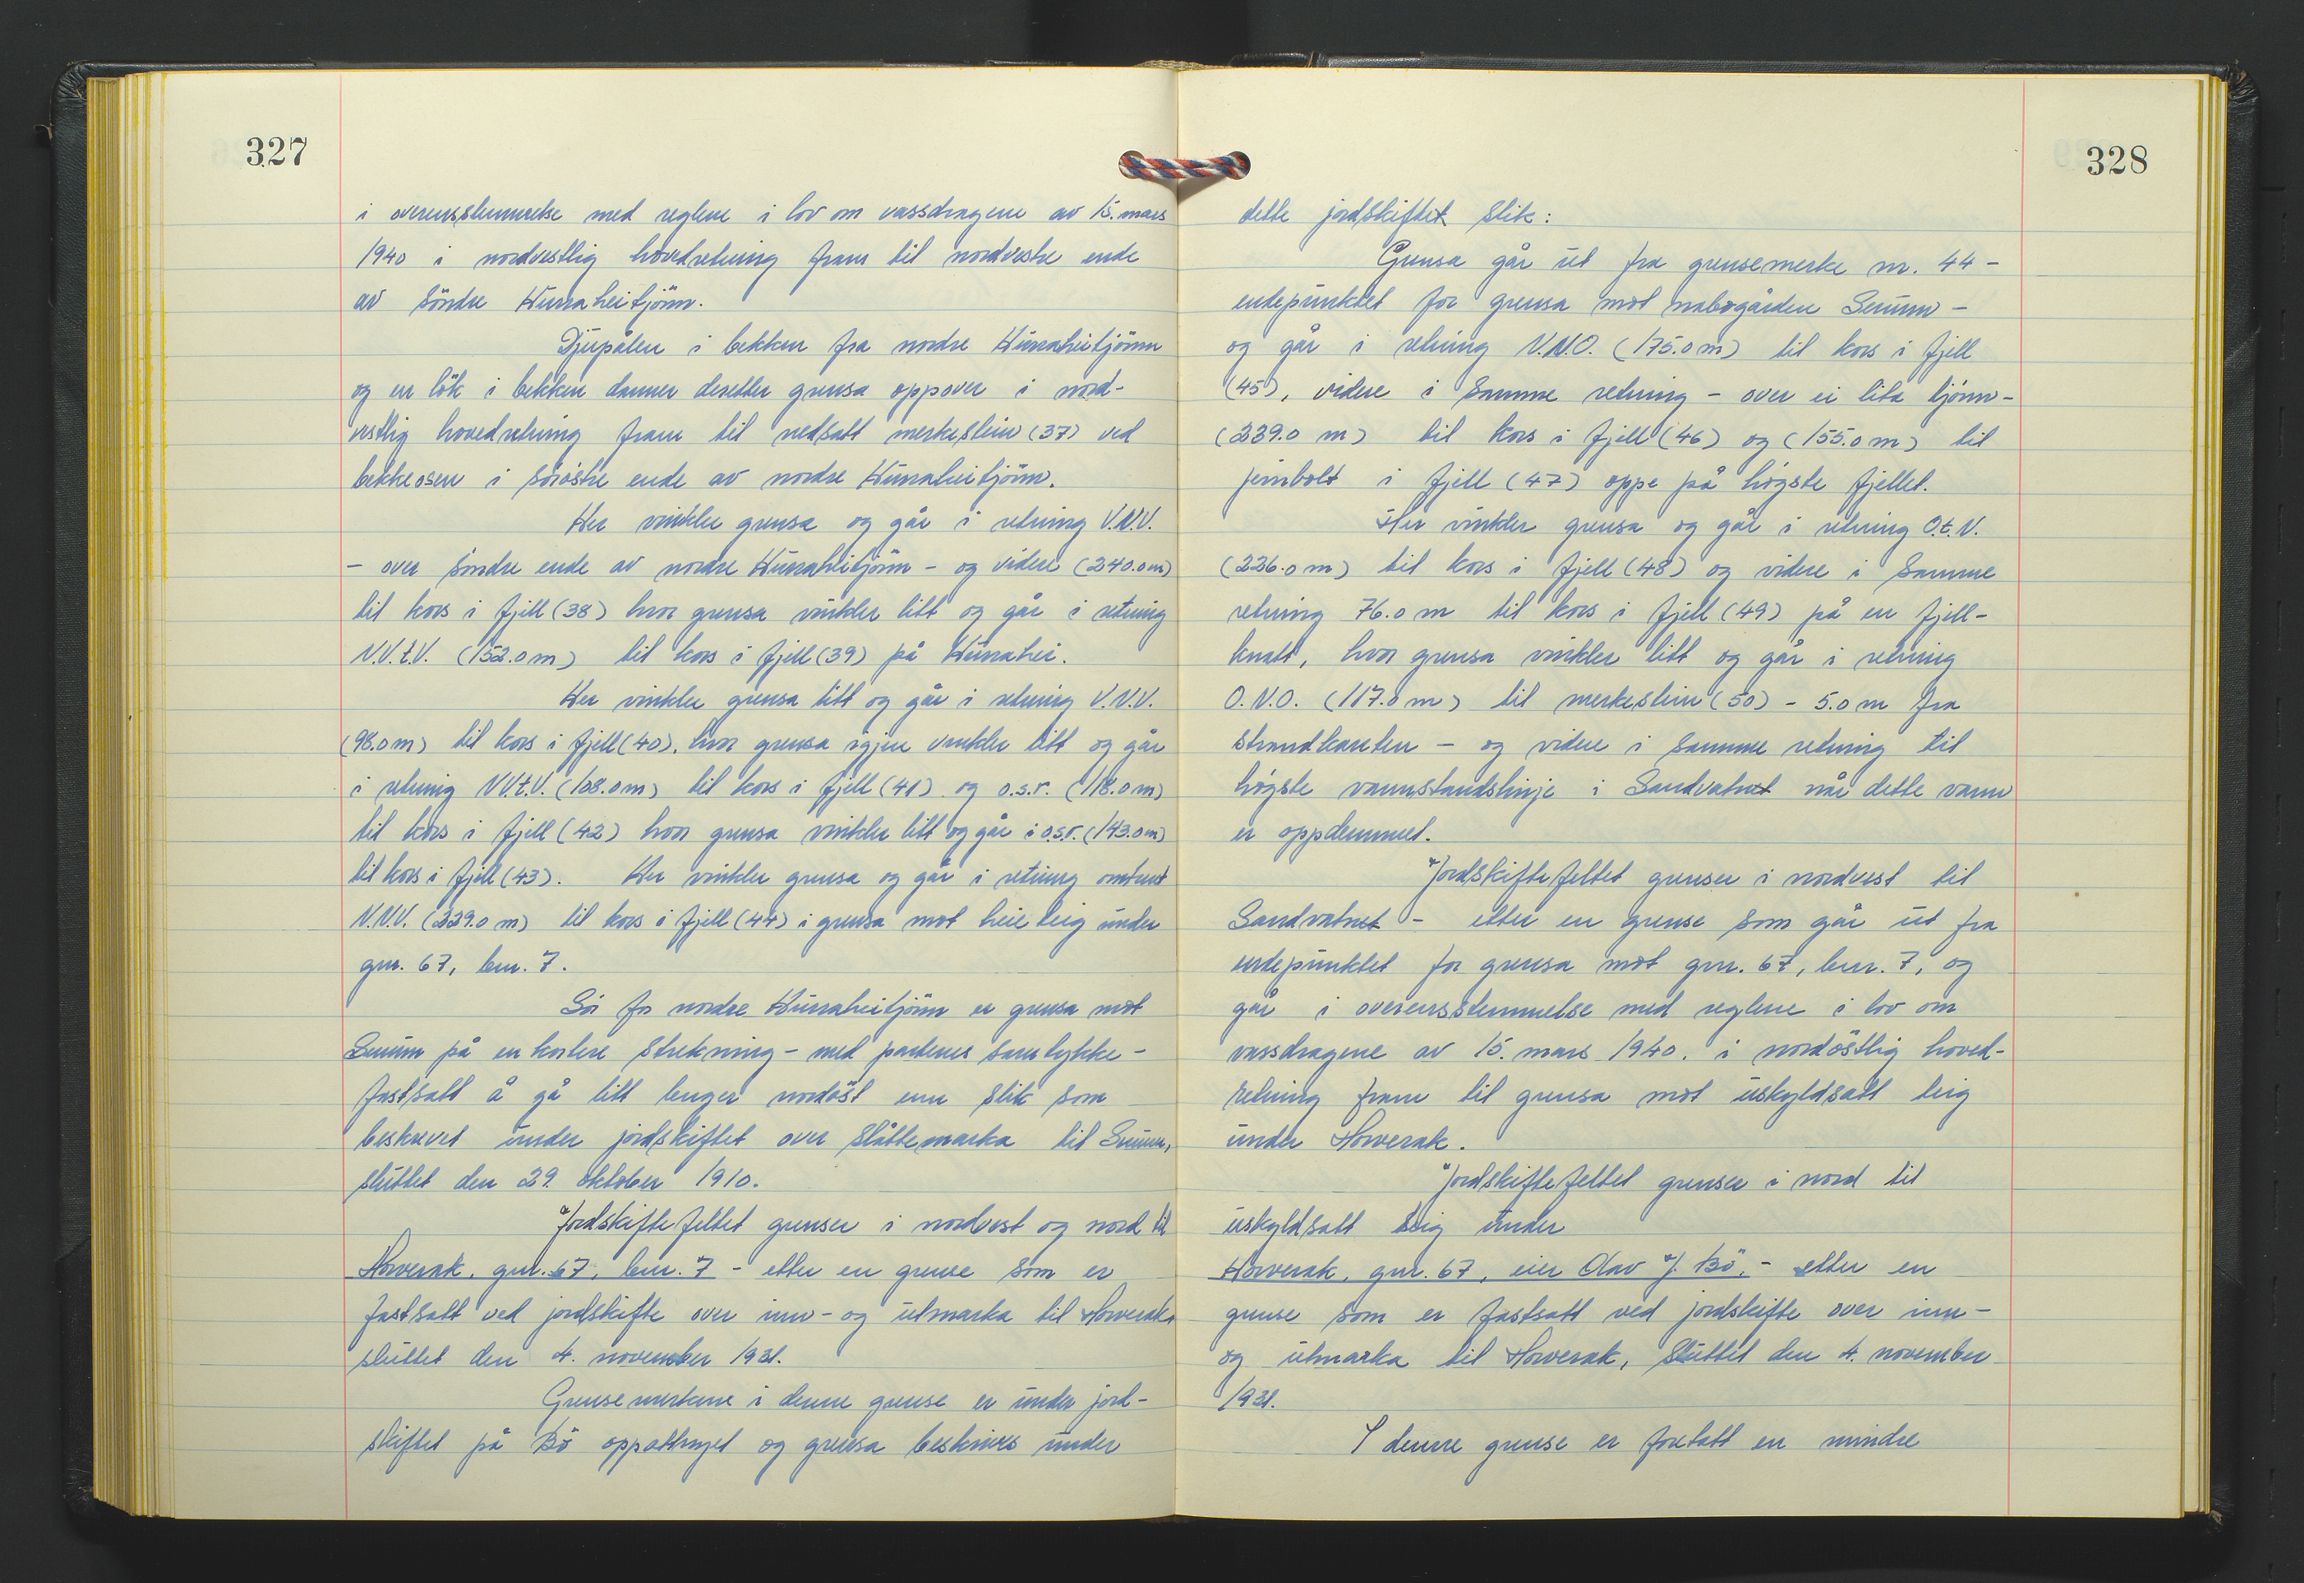 327
i overensstemmelse med reglene i lov om vassdragene av 15. mars
1940 i nordvestlig hovedretning fram til nordvestre ende
av söndre Hunaheitjönn.
Djupålen i bekken fra nordre Hunaheitjönn
og en lök i bekken danner deretter grensa oppover i nord-
vestlig hovedretning fram til nedsatt merkestein (37) ved
bekkeosen i söröstre ende av nordre Hunaheitjönn.
Her vinkler grensa og går i retning V.N.V.
- over söndre ende av nordre Hunaheitjönn - og videre (240.0 m)
til kors i fjell (38) hvor grensa vinkler litt og går i retning
N.V.t.V. (152.0 m) til kors i fjell (39) på Hunahei.
Her vinkler grensa litt og går i retning V.N.V.
(98.0 m) til kors i fjell (40), hvor grensa igjen vinkler litt og går
i retning NV.t.V. (108.0 m) til kors i fjell (41) og o.s.r. (118.0 m)
til kors i fjell (42) hvor grensa vinkler litt og går i o.s.r. (143.0 m)
til kors i fjell (43). Her vinkler grensa og går i retning omtrent
N.N.V. (229.0 m) til kors i fjell (44) i grensa mot heieteig under
gnr. 67, bnr. 7.
Sör for nordre Hunaheitjönn er grensa mot
Senum på en kortere strekning - med partenes samtykke -
fastsatt å gå litt lenger nordöst enn slik som
beskrevet under jordskiftet over slåttemarka til Senum,
sluttet den 29. oktober 1910.
Jordskiftefeltet grenser i nordvest og nord til
Horverak, gnr. 67, bnr. 7 - etter en grense som er
fastsatt ved jordskifte over inn- og utmarka til Horverak,
sluttet den 4. november 1931.
Grensemerkene i denne grense er under jord-
skiftet på Bö oppattnyet og grensa beskrives under
328
dette jordskiftet slik:
Grensa går ut fra grensemerke nr. 44 -
endepunktet for grensa mot nabogården Senum -
og går i retning N.N.O. (175.0 m) til kors i fjell
(45), videre i samme retning - over ei lita tjönn -
(239.0 m) til kors i fjell (46) og (155.0 m) til
jernbolt i fjell (47) oppe på högste fjellet.
Her vinkler grensa og går i retning O.t.N.
(226.0 m) til kors i fjell (48) og videre i samme
retning 76.0 m til kors i fjell (49) på en fjell-
knatt, hvor grensa vinkler litt og går i retning
O.N.O. (117.0 m) til merkestein (50) - 5.0 m fra
strandkanten - og videre i samme retning til
högste vannstandslinje i Sandvatnet når dette vann
er oppdemmet.
Jordskiftefeltet grenser i nordvest til
Sandvatnet - etter en grense som går ut fra
endepunktet for grensa mot gnr. 67, bnr. 7, og
går i overensstemmelse med reglene i lov om
vassdragene av 15. mars 1940. i nordöstlig hoved-
retning fram til grensa mot uskyldsatt teig
under Horverak.
Jordskiftefeltet grenser i nord til
uskyldsatt teig under
Horverak, gnr. 67, eier Olav J. Bö, - etter en
grense som er fastsatt ved jordskifte over inn-
og utmarka til Horverak, sluttet den 4. november
1931.
I denne grense er foretatt en mindre